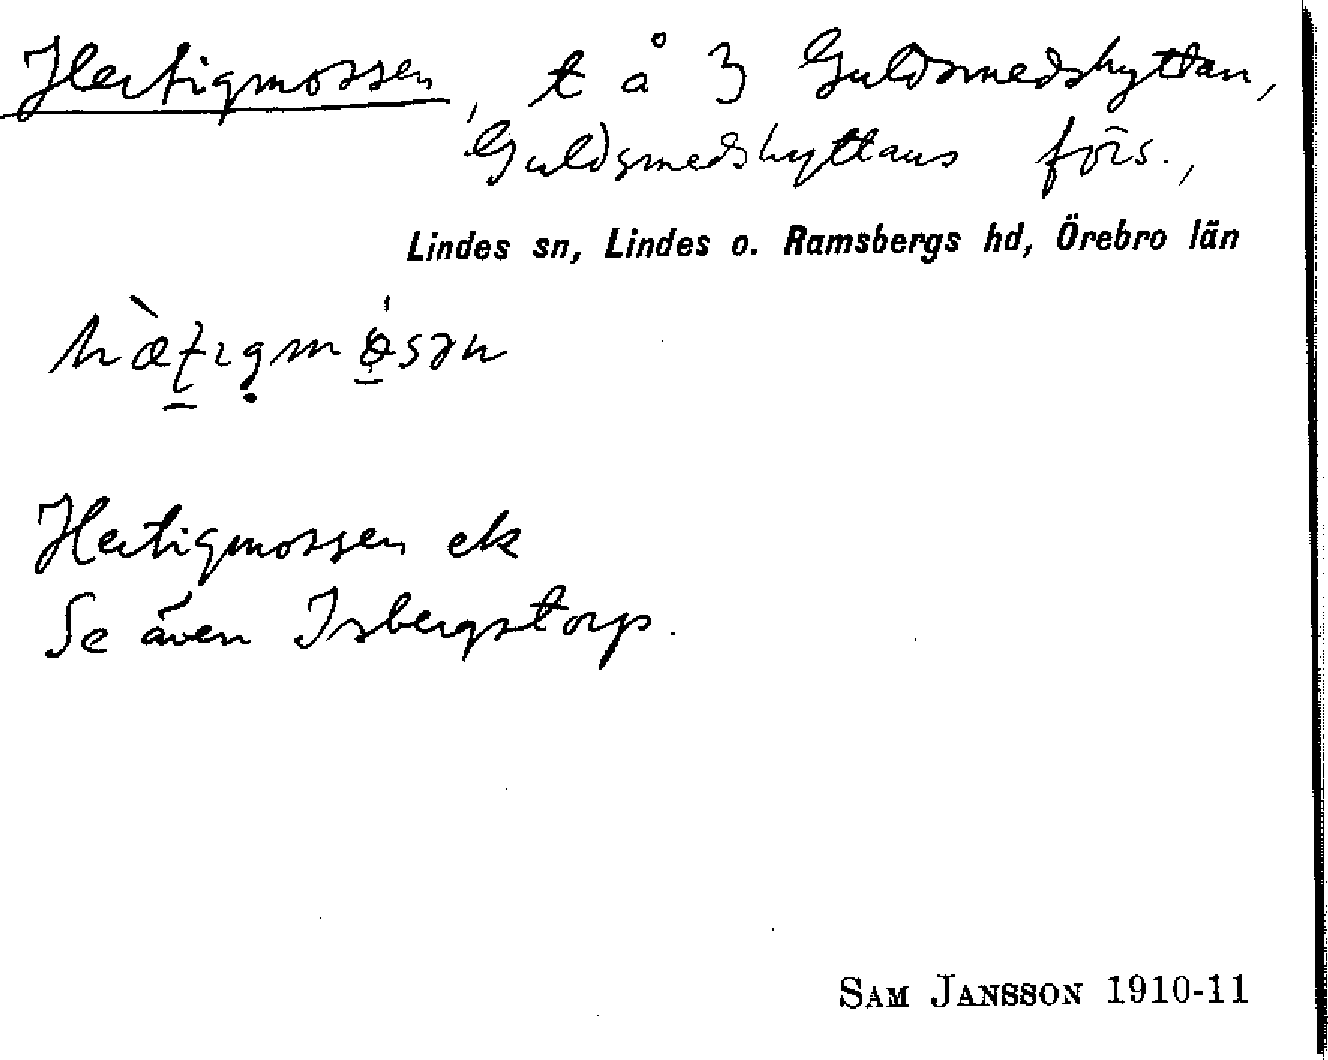 Hertigmossen, t å 3 Guldsmedshyttan,
Guldsmedshyttans förs.,
Lindes sn, Lindes o. Ramsbergs hd, Örebro län
Hertigmossen ek
Se även Isbergstorp.
SAM JANSSON 1910-11